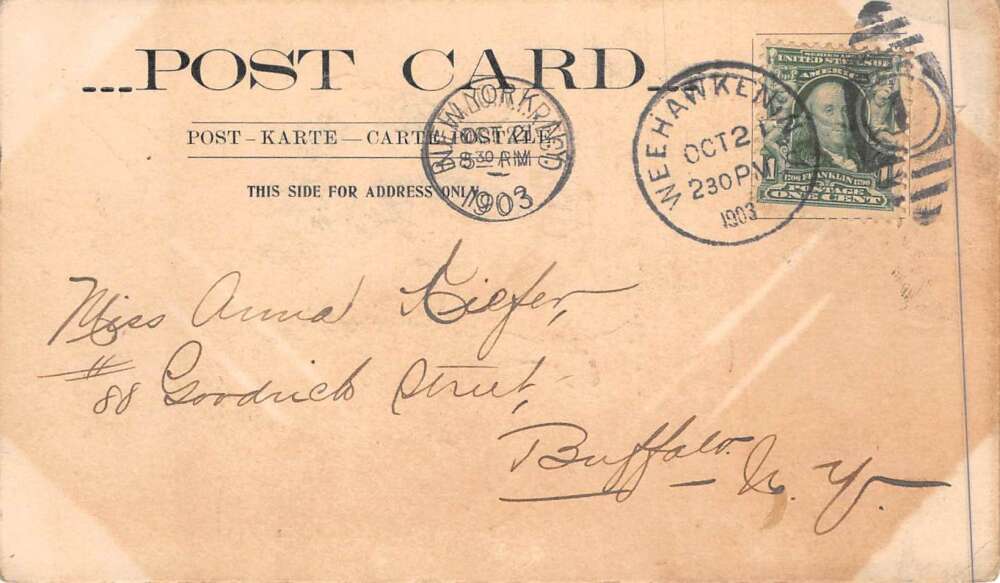 POST CARD
POST-KARTE—CARTE POSTALE
THIS SIDE FOR ADDRESS ONLY
NEW YORK, R.P.O.
OCT 21
8 30 PM
1903
WEEHAWKEN, N.J.
OCT 21
2 30 PM
1903
SERIES 1902
UNITED STATES OF
AMERICA
1706 FRANKLIN 1790
POSTAGE
1 ONE CENT 1
Miss Anna Kiefer,
# 88 Goodrich Street,
Buffalo. N. Y.